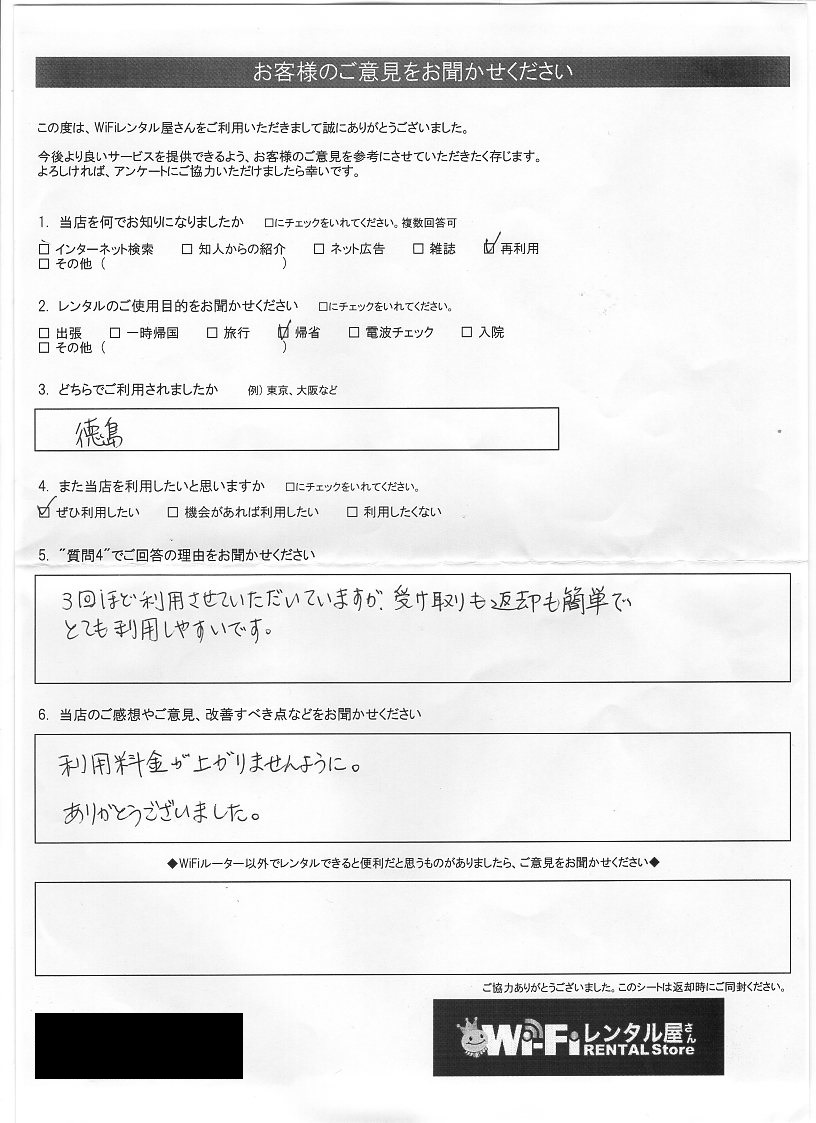 お客様のご意見をお聞かせください
この度は、WiFiレンタル屋さんをご利用いただきまして誠にありがとうございました。
今後より良いサービスを提供できるよう、お客様のご意見を参考にさせていただきたく存じます。
よろしければ、アンケートにご協力いただけましたら幸いです。
1. 当店を何でお知りになりましたか □にチェックをいれてください。複数回答可
□ インターネット検索 □ 知人からの紹介 □ ネット広告 □ 雑誌 ☑ 再利用
□ その他 ( )
2. レンタルのご使用目的をお聞かせください □にチェックをいれてください。
□ 出張 □ 一時帰国 □ 旅行 ☑ 帰省 □ 電波チェック □ 入院
□ その他 ( )
3. どちらでご利用されましたか 例) 東京、大阪など
徳島
4. また当店を利用したいと思いますか □にチェックをいれてください。
☑ ぜひ利用したい □ 機会があれば利用したい □ 利用したくない
5. "質問4"でご回答の理由をお聞かせください
3回ほど利用させていただいていますが、受け取りも返却も簡単で
とても利用しやすいです。
6. 当店のご感想やご意見、改善すべき点などをお聞かせください
利用料金が上がりませんように。
ありがとうございました。
◆WiFiルーター以外でレンタルできると便利だと思うものがありましたら、ご意見をお聞かせください◆
ご協力ありがとうございました。このシートは返却時にご同封ください。
Wi-Fiレンタル屋さん
RENTAL Store